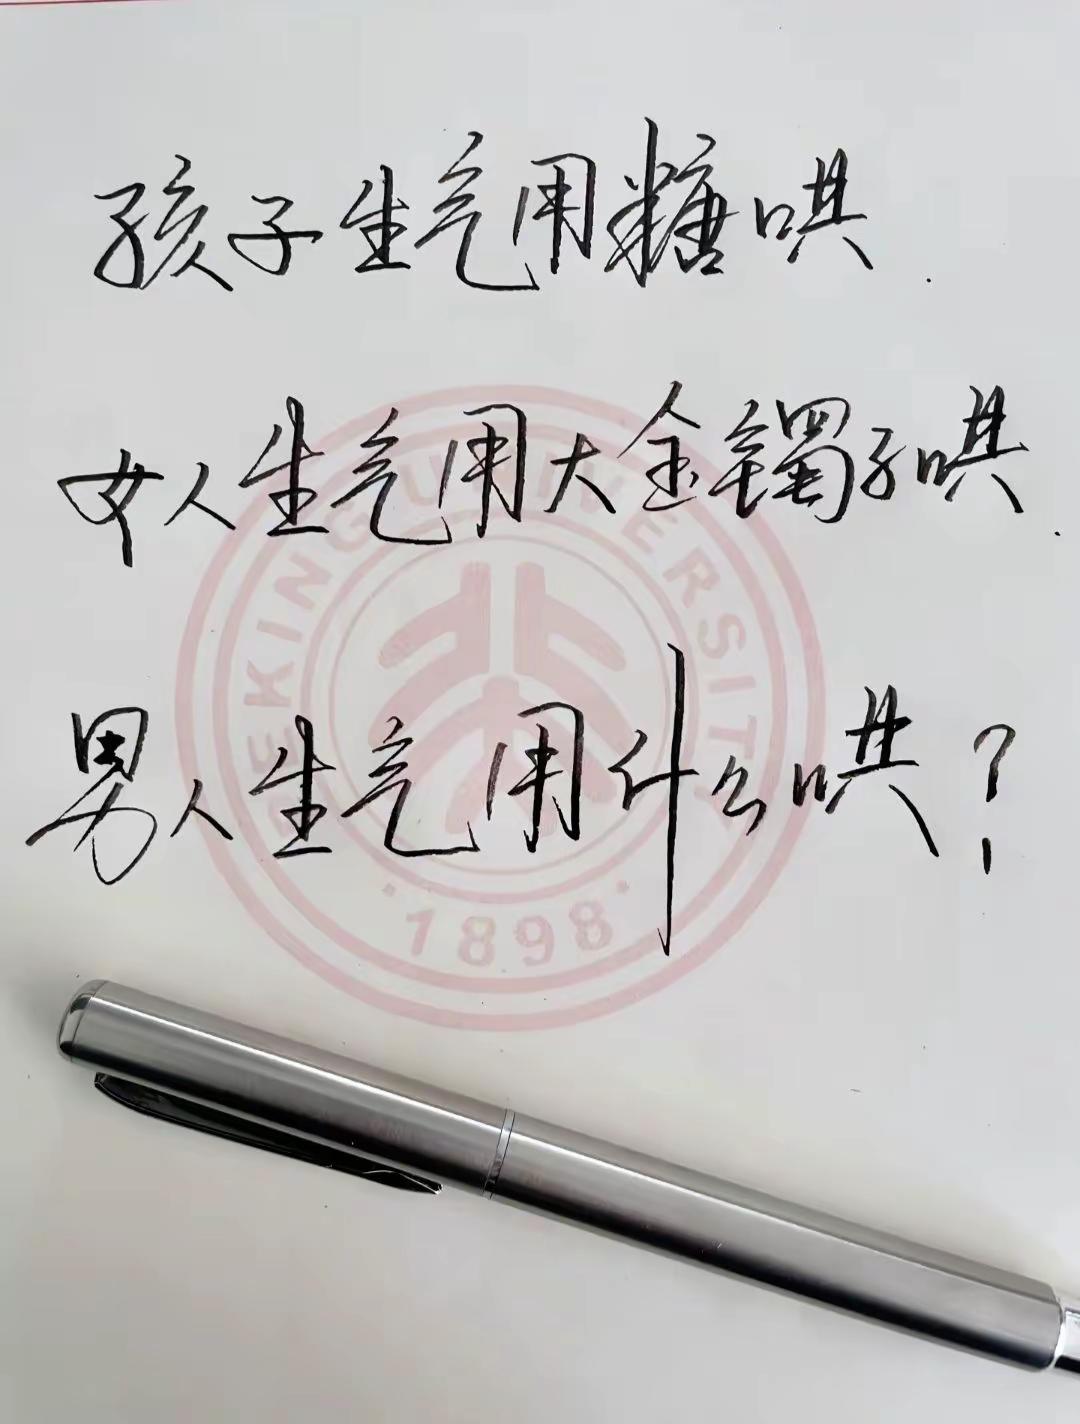 孩子生气用糖哄.
女人生气用大金镯子哄.
男人生气用什么哄?
PEKING UNIVERSITY
1898